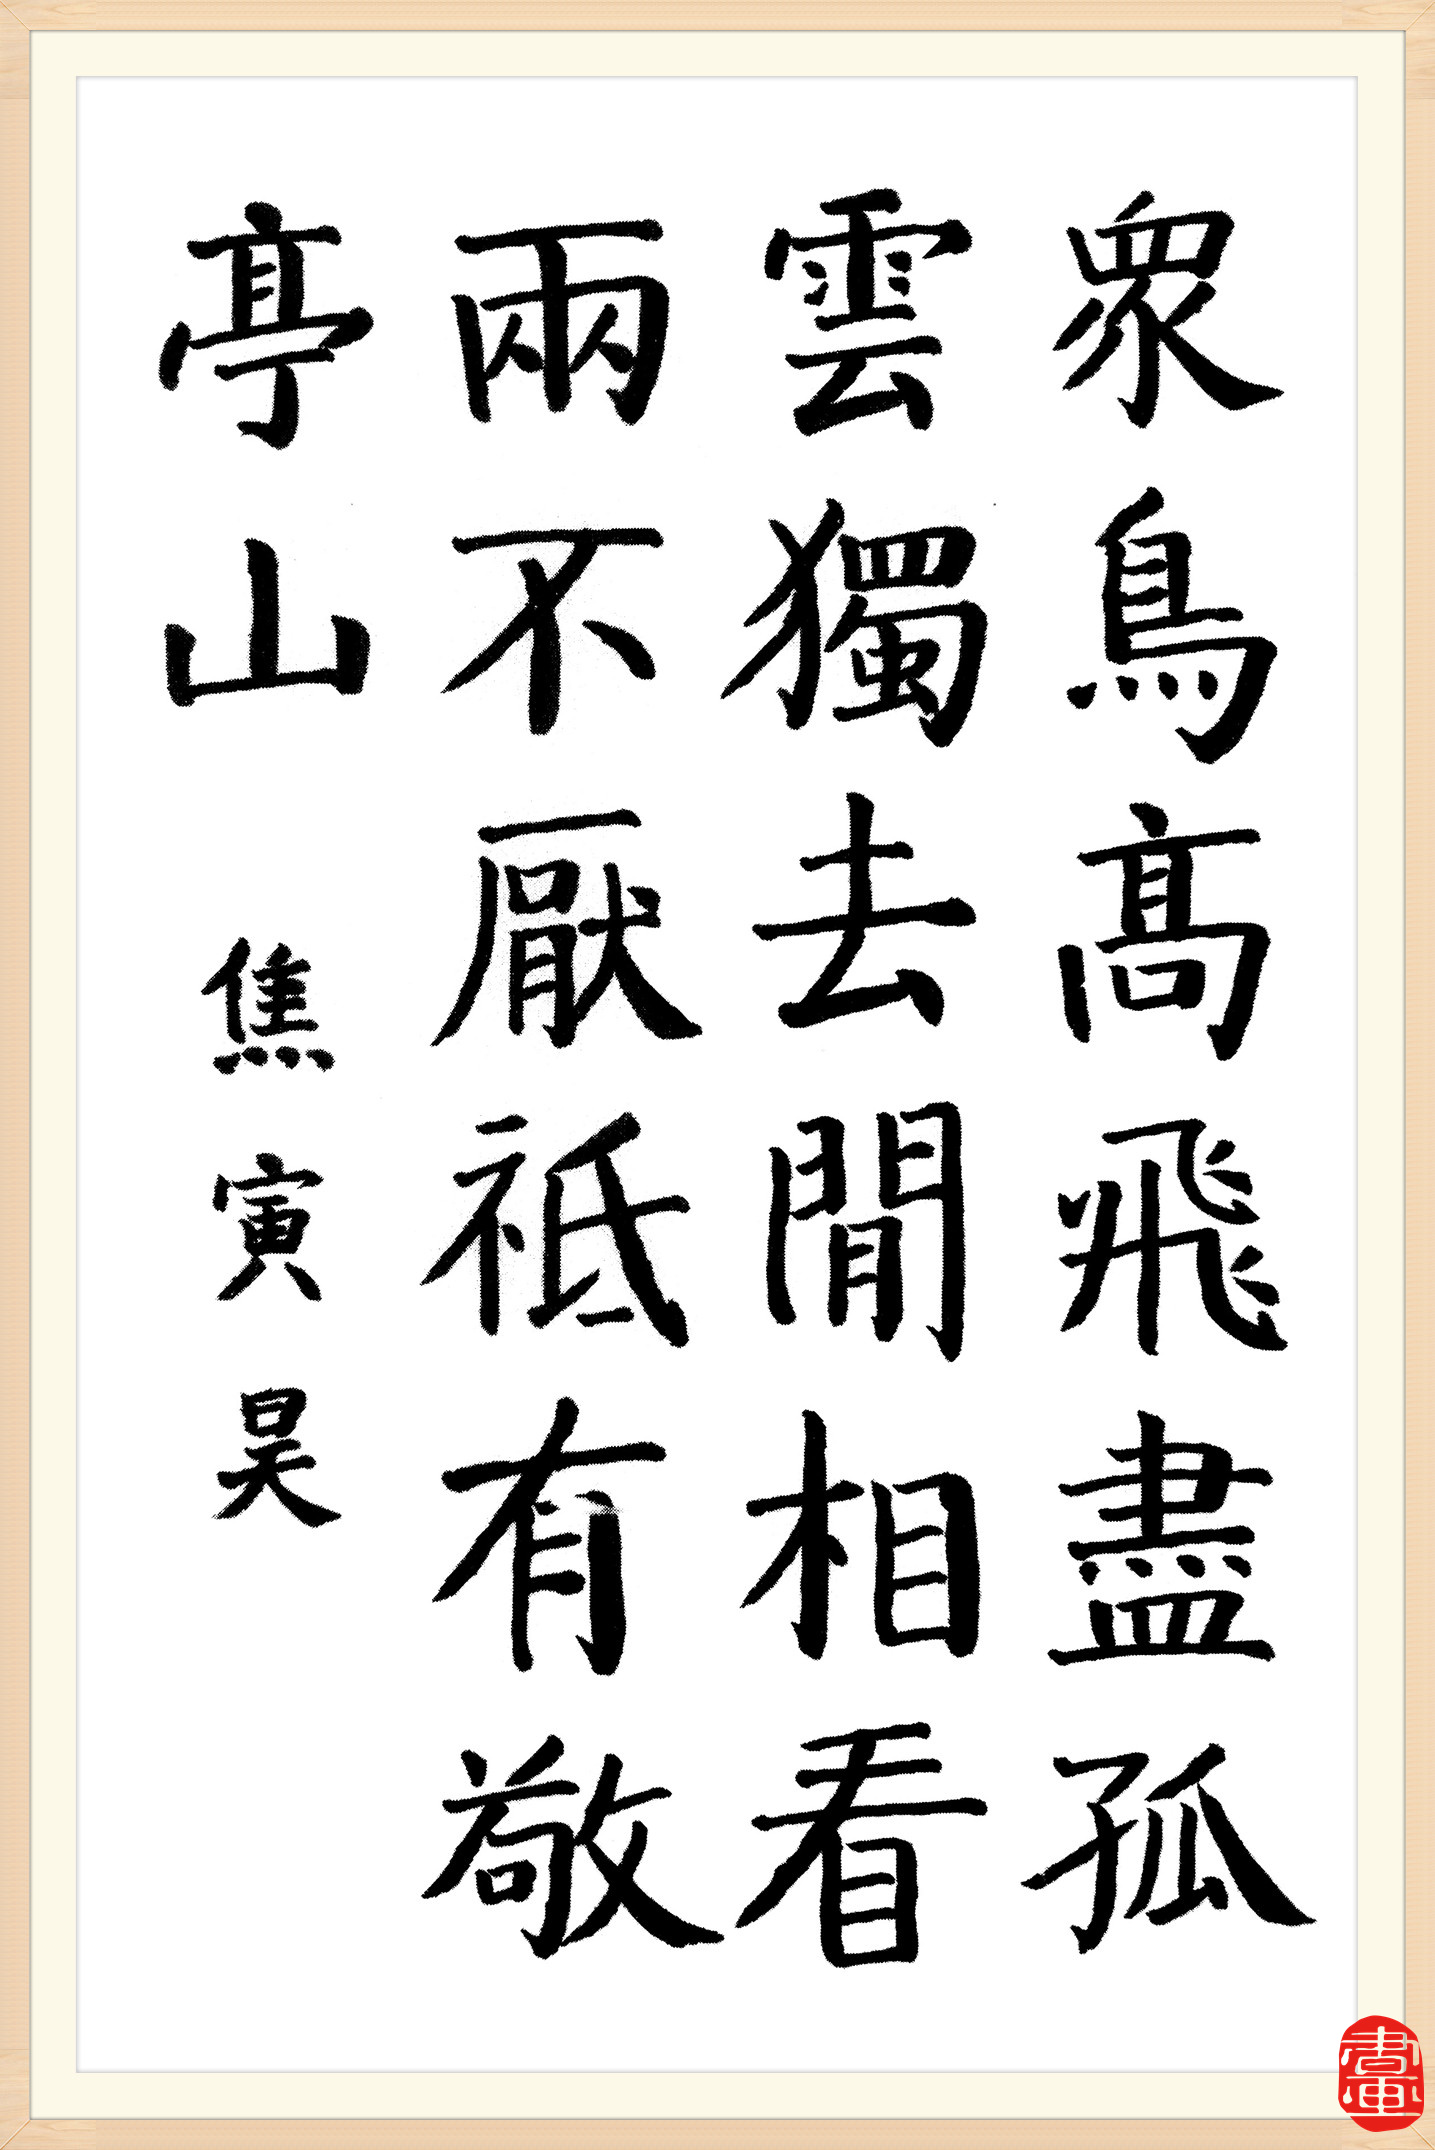 眾鳥高飛盡孤
雲獨去閒相看
兩不厭祗有敬
亭山 焦寅昊
書画